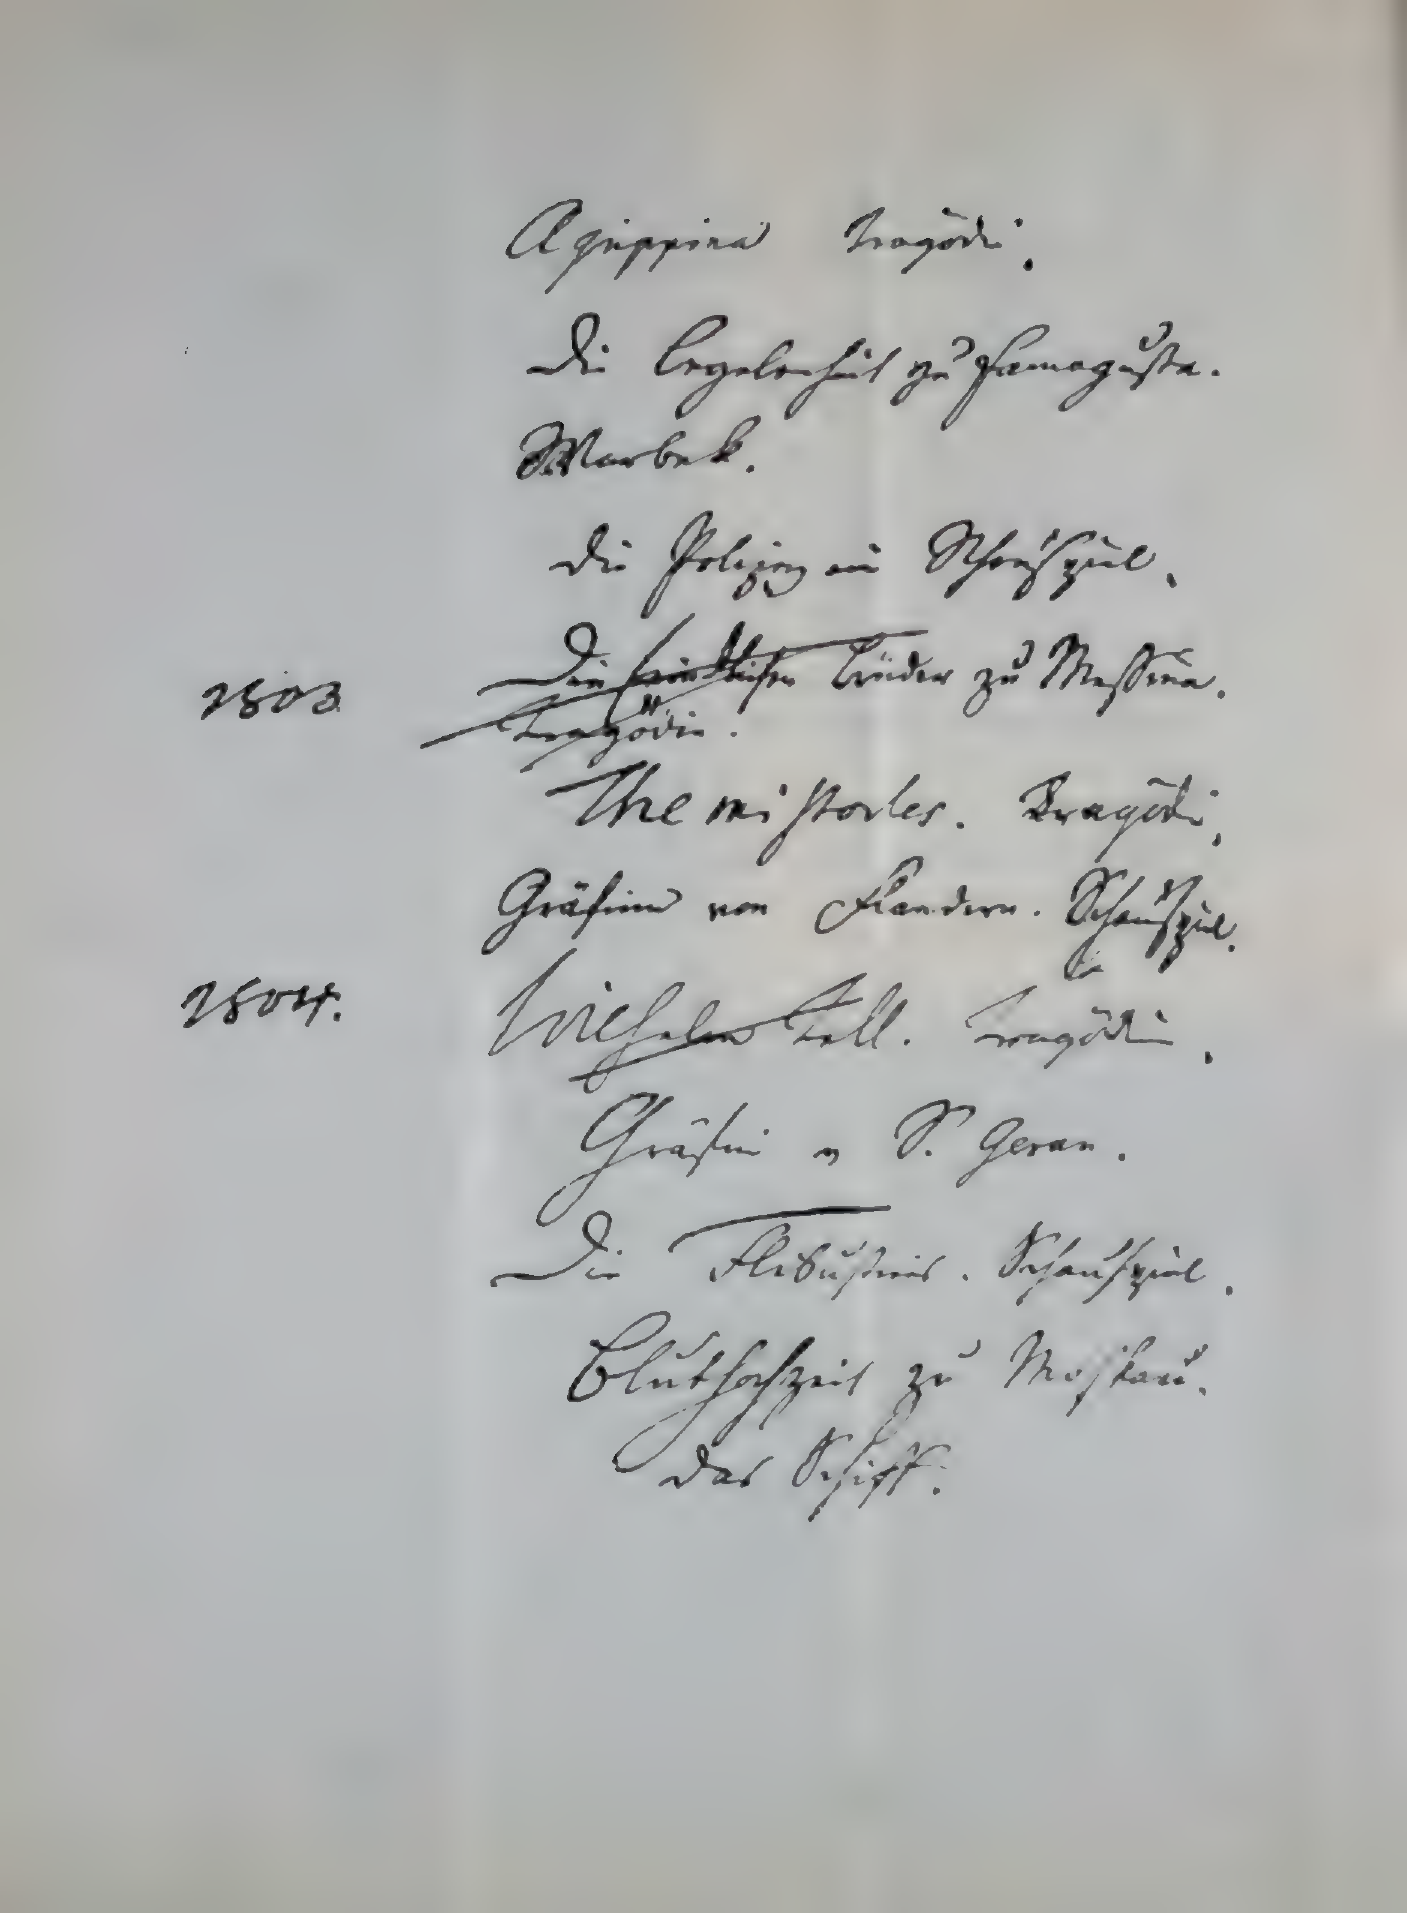 Agrippina Tragödie.
Die Begebenheit zu Famagusta.
Warbek.
Die Polizey ein Schauspiel.
1803 Die feindlichen Brüder zu Messina.
Tragödie.
Themistocles. Tragödie.
Gräfinn von Flandern. Schauspiel.
1804. Wilhelm Tell. Tragödie.
Gräfin v S. Geran.
Die Flibustiers. Schauspiel.
Bluthochzeit zu Moskau.
Das Schiff.